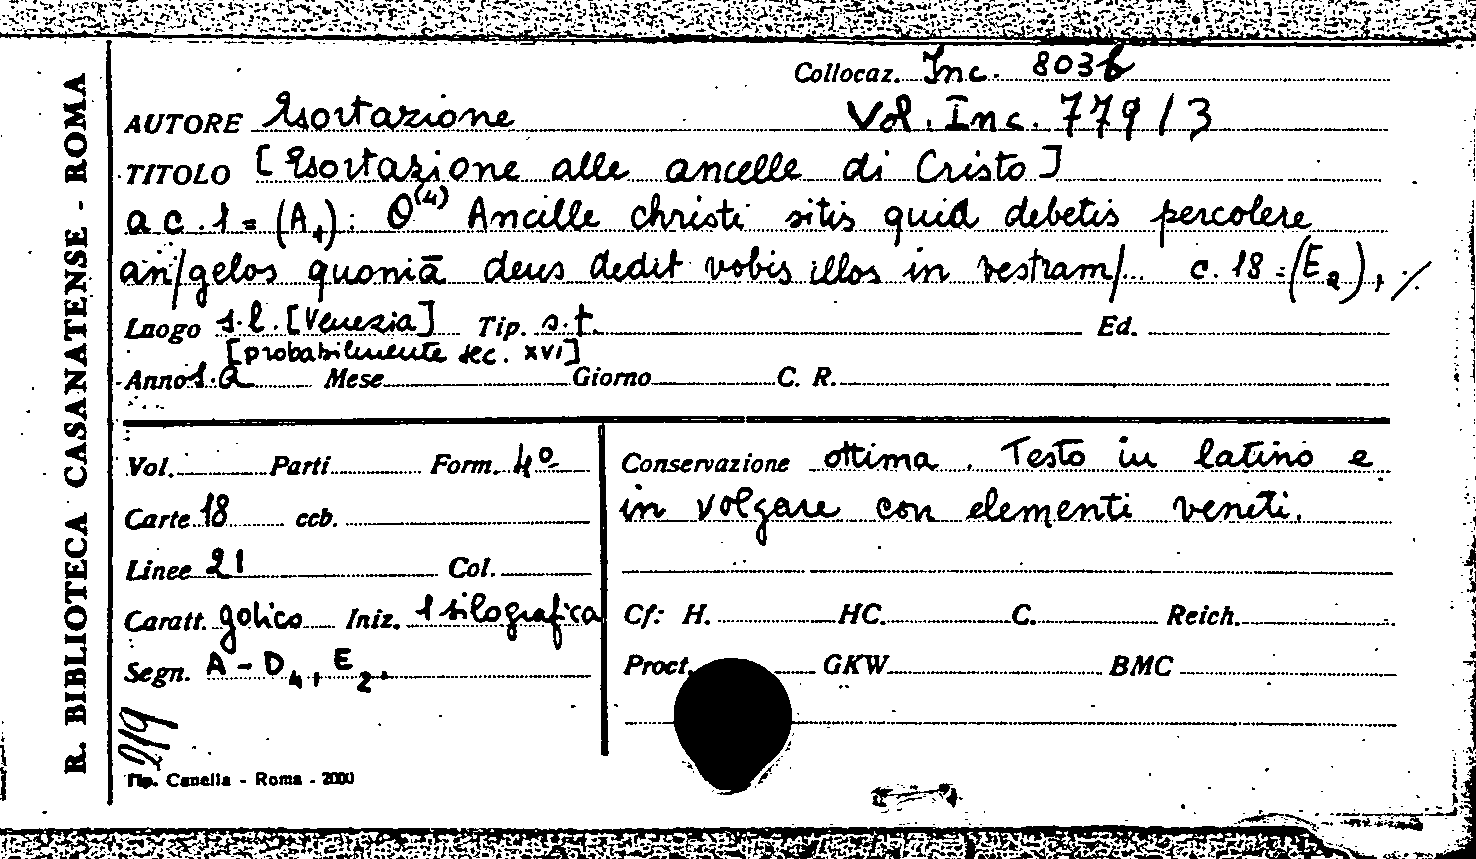 R. BIBLIOTECA CASANATENSE - ROMA
Collocaz. Inc. 803b
AUTORE Esortazione Vol. Inc. 779/3
TITOLO [Esortazione alle ancelle di Cristo]
a c. 1 = (A1): O(4) Ancille christi sitis quid debetis percolere
an/gelos quoniā deus dedit vobis illos in vestram/... c. 18 = (E2), ./.
Luogo s.l. [Venezia] Tip. s.t. Ed.
[probabilmente sec. XVI]
Anno s.a Mese Giorno C. R.
Vol. Parti Form. 4º
Carte 18 ccb.
Linee 21 Col.
Caratt. gotico Iniz. 1 silografica
Segn. A-D4, E2.
219
Tip. Canella - Roma - 2000
Conservazione ottima. Testo in latino e
in volgare con elementi veneti.
Cf: H. HC. C. Reich.
Proct. GKW BMC